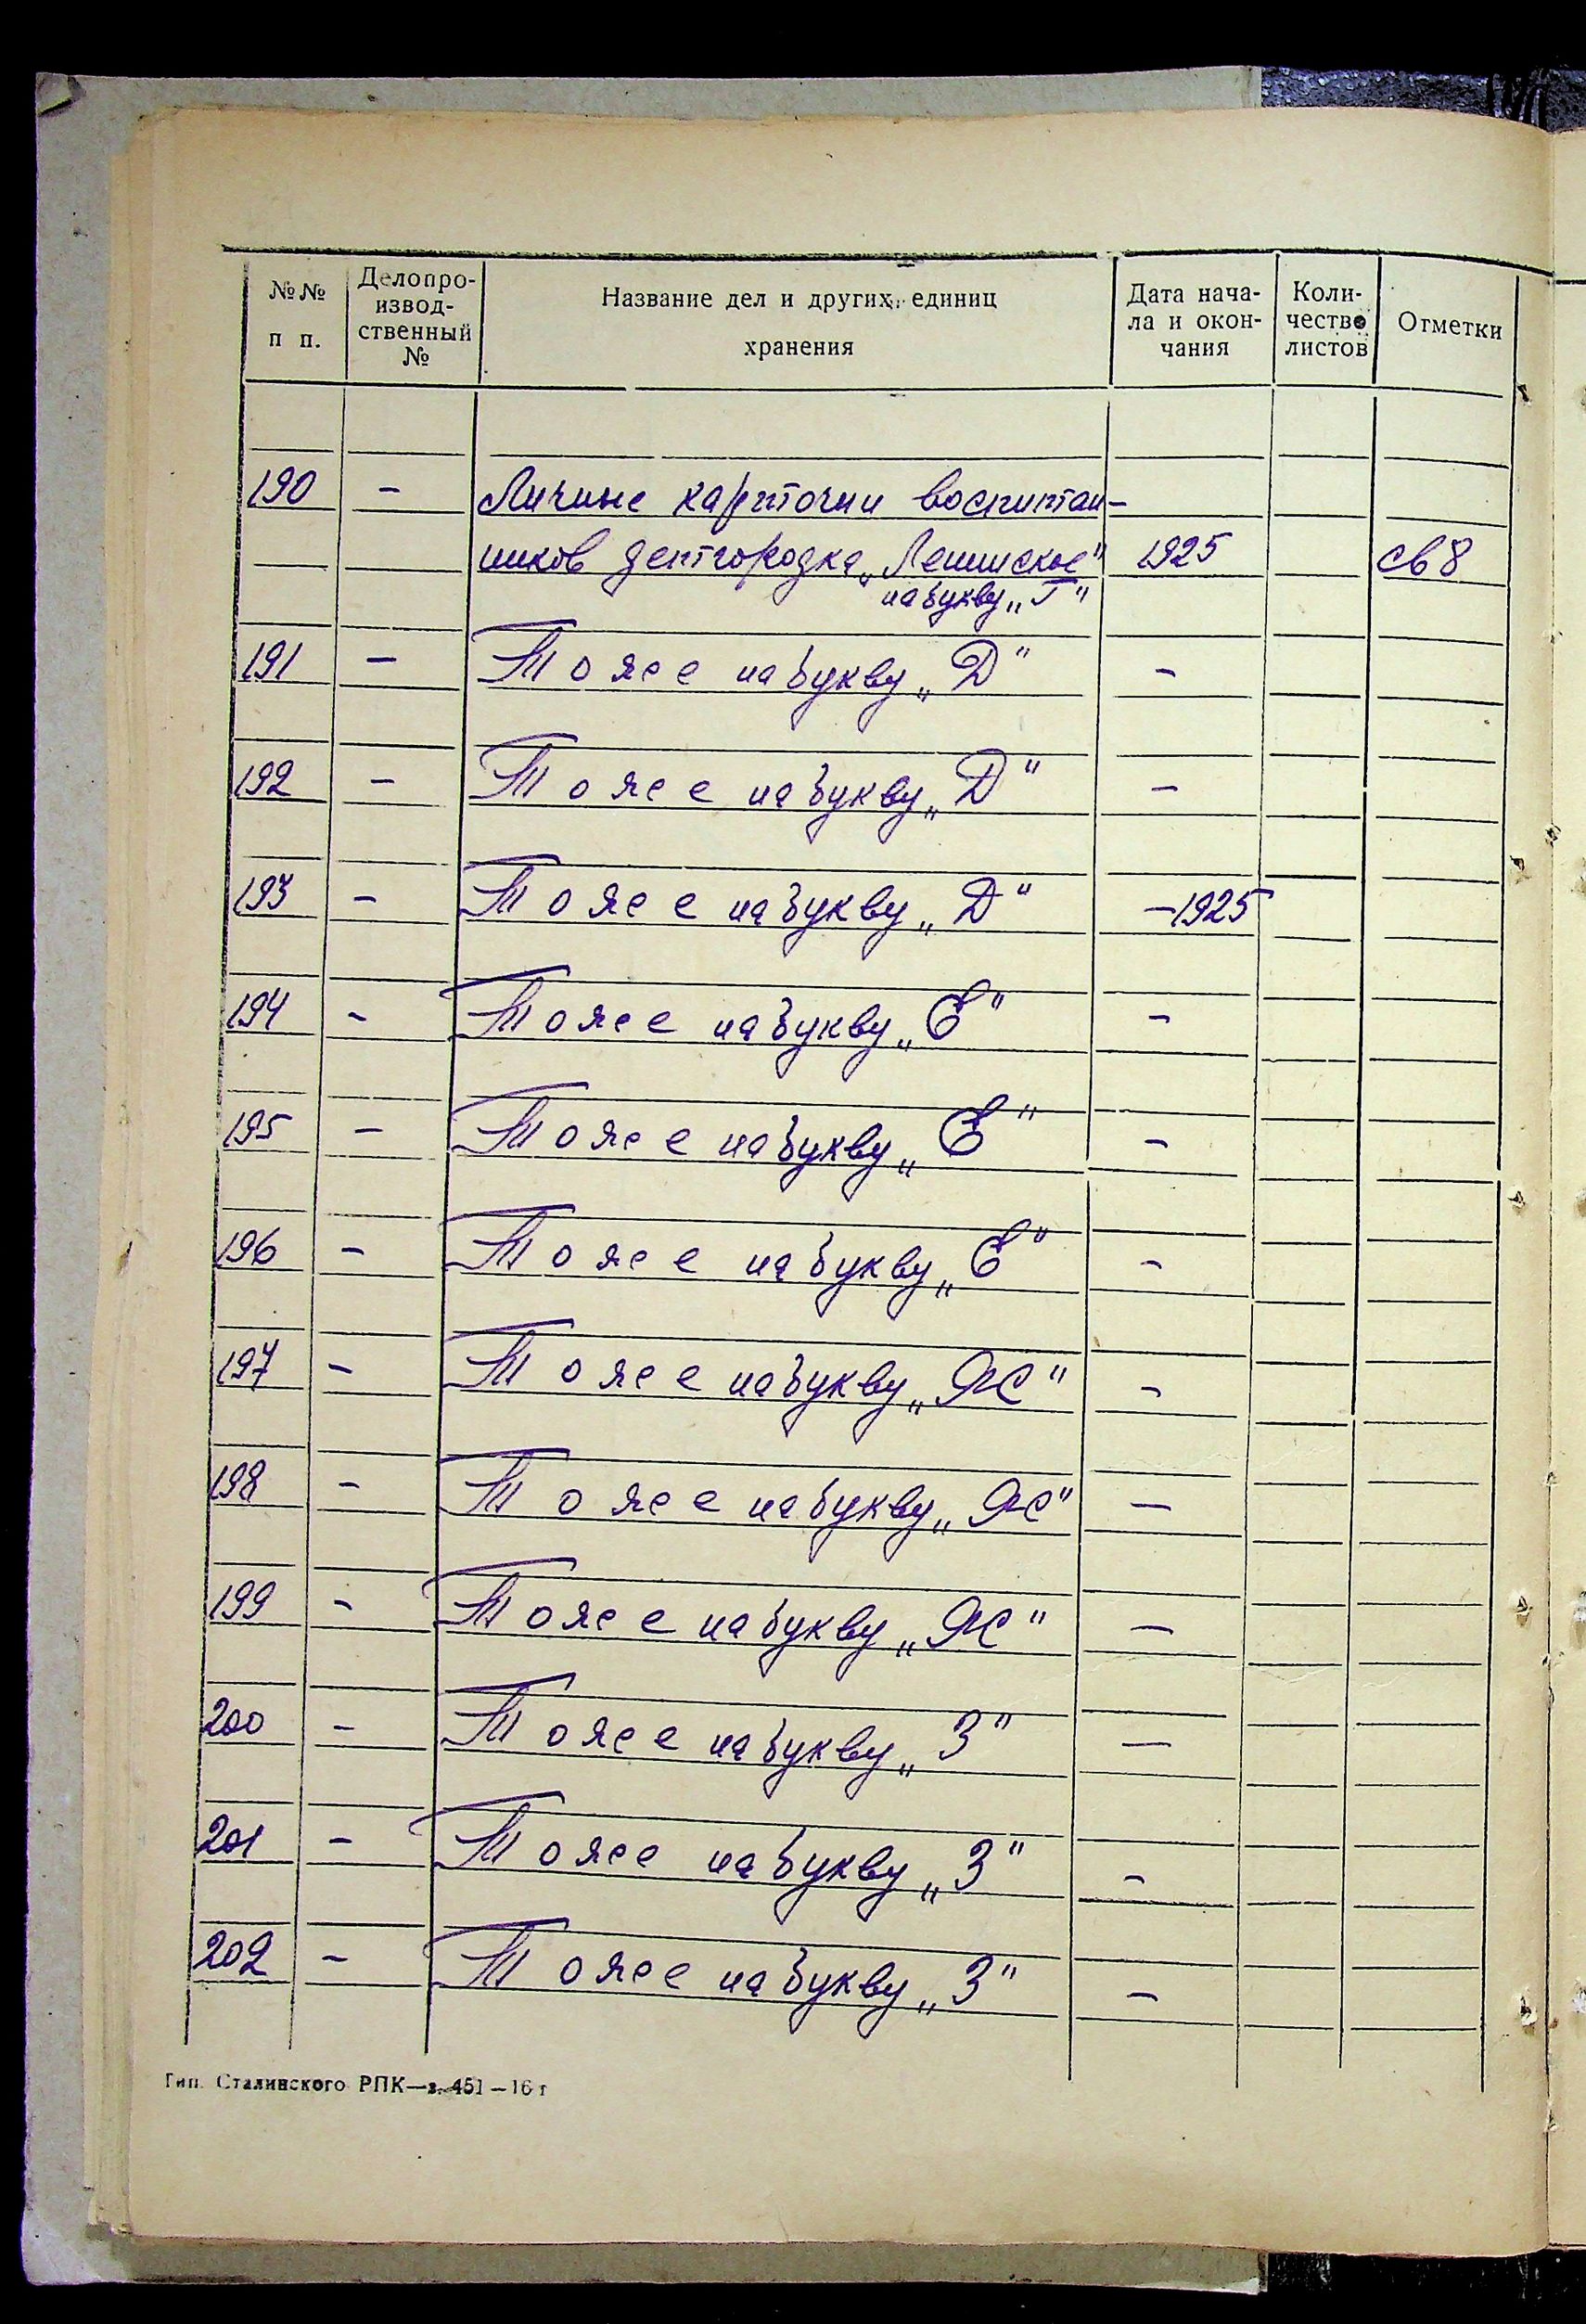 №№ п п. Делопро-извод-ственный № Название дел и других единиц хранения Дата нача-ла и окон-чания Коли-чество листов Отметки
190 – Личные карточки воспитан-
ников детгородка „Ленинское" 1925 св 8
на букву „Г"
191 – То же на букву „Д" –
192 – То же на букву „Д" –
193 – То же на букву „Д" –1925
194 – То же на букву „Е" –
195 – То же на букву „Е" –
196 – То же на букву „Е" –
197 – То же на букву „Ж" –
198 – То же на букву „Ж" –
199 – То же на букву „Ж" –
200 – То же на букву „З" –
201 – То же на букву „З" –
202 – То же на букву „З" –
Гип. Сталинского РПК—з. 451—16 г